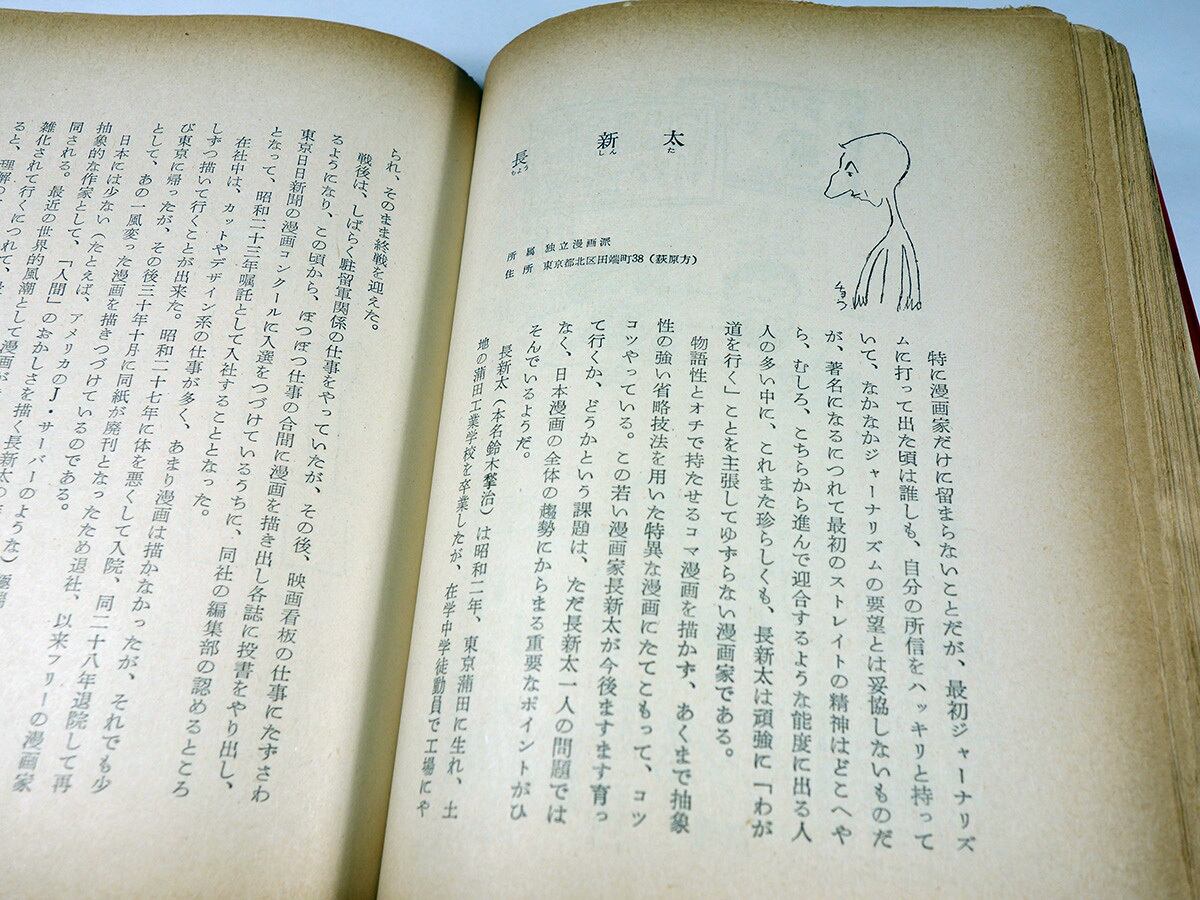 長新太
ちょうしんた
所属 独立漫画派
住所 東京都北区田端町38(萩原方)
チョウ
特に漫画家だけに留まらないことだが、最初ジャーナリズ
ムに打って出た頃は誰しも、自分の所信をハッキリと持って
いて、なかなかジャーナリズムの要望とは妥協しないものだ
が、著名になるにつれて最初のストレイトの精神はどこへや
ら、むしろ、こちらから進んで迎合するような態度に出る人
人の多い中に、これまた珍らしくも、長新太は頑強に「わが
道を行く」ことを主張してゆずらない漫画家である。
物語性とオチで持たせるコマ漫画を描かず、あくまで抽象
性の強い省略技法を用いた特異な漫画にたてこもって、コツ
コツやっている。この若い漫画家長新太が今後ますます育っ
て行くか、どうかという課題は、ただ長新太一人の問題では
なく、日本漫画の全体の趨勢にからまる重要なポイントがひ
そんでいるようだ。
長新太(本名鈴木揫治)は昭和二年、東京蒲田に生れ、土
地の蒲田工業学校を卒業したが、在学中学徒動員で工場にや
られ、そのまま終戦を迎えた。
戦後は、しばらく駐留軍関係の仕事をやっていたが、その後、映画看板の仕事にたずさわ
るようになり、この頃から、ぼつぼつ仕事の合間に漫画を描き出し各誌に投書をやり出し、
東京日日新聞の漫画コンクールに入選をつづけているうちに、同社の編集部の認めるところ
となって、昭和二十三年嘱託として入社することとなった。
在社中は、カットやデザイン系の仕事が多く、あまり漫画は描かなかったが、それでも少
しずつ描いて行くことが出来た。昭和二十七年に体を悪くして入院、同二十八年退院して再
び東京に帰ったが、その後三十年十月に同紙が廃刊となったため退社、以来フリーの漫画家
として、あの一風変った漫画を描きつづけているのである。
日本には少ない(たとえば、アメリカのJ・サーバーのような)
抽象的な作家として、「人間」のおかしさを描く長新太の
同される。最近の世界的風潮として漫画が
雑化されて行くにつれて、
ると、理解の